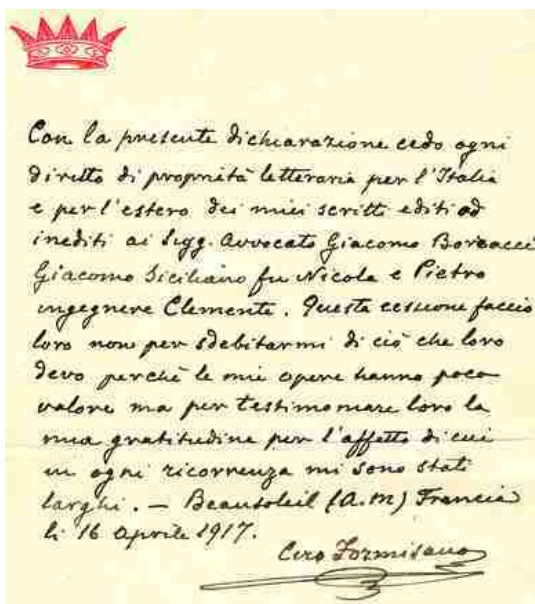 Con la presente dichiarazione cedo ogni
diritto di proprietà letteraria per l'Italia
e per l'estero dei miei scritti editi ed
inediti ai Sigg. Avvocato Giacomo Borracci
Giacomo Siciliano fu Nicola e Pietro
ingegnere Clemente. Questa cessione faccio
loro non per sdebitarmi di ciò che loro
devo perchè le mie opere hanno poco
valore ma per testimoniare loro la
mia gratitudine per l'affetto di cui
in ogni ricorrenza mi sono stati
larghi. — Beausoleil (A.M) Francia
li 16 Aprile 1917.
Ciro Formisano